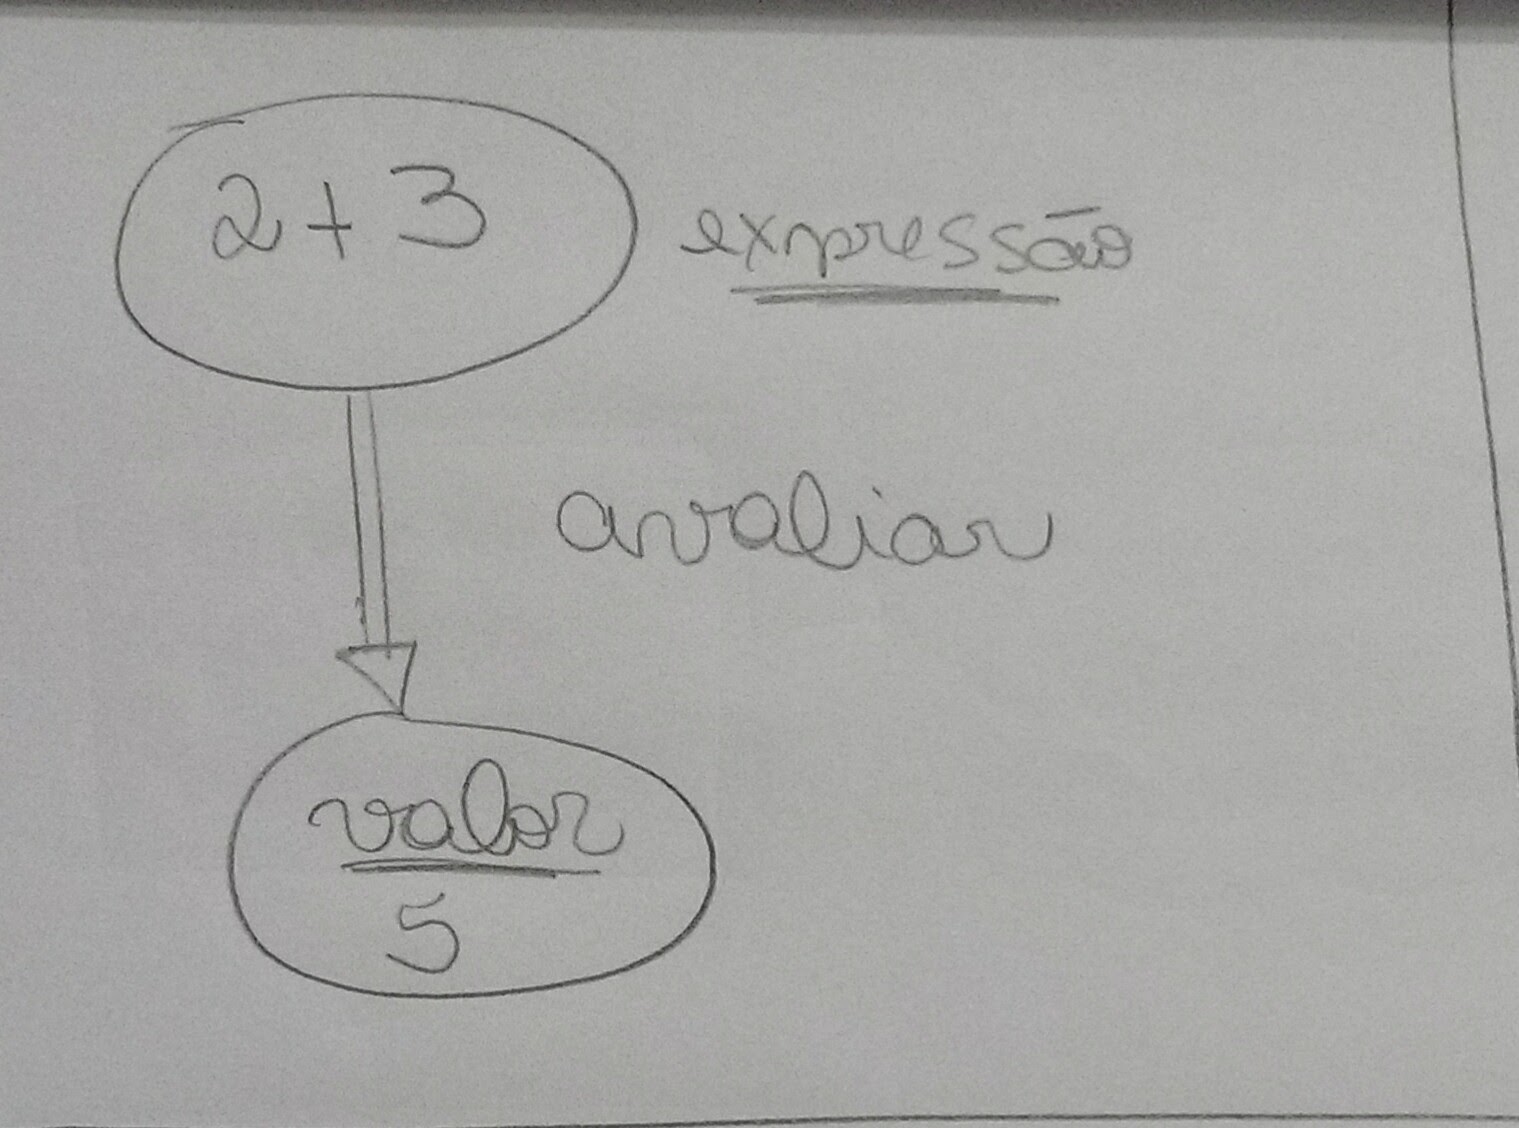 2+3
expressão
avaliar
valor
5